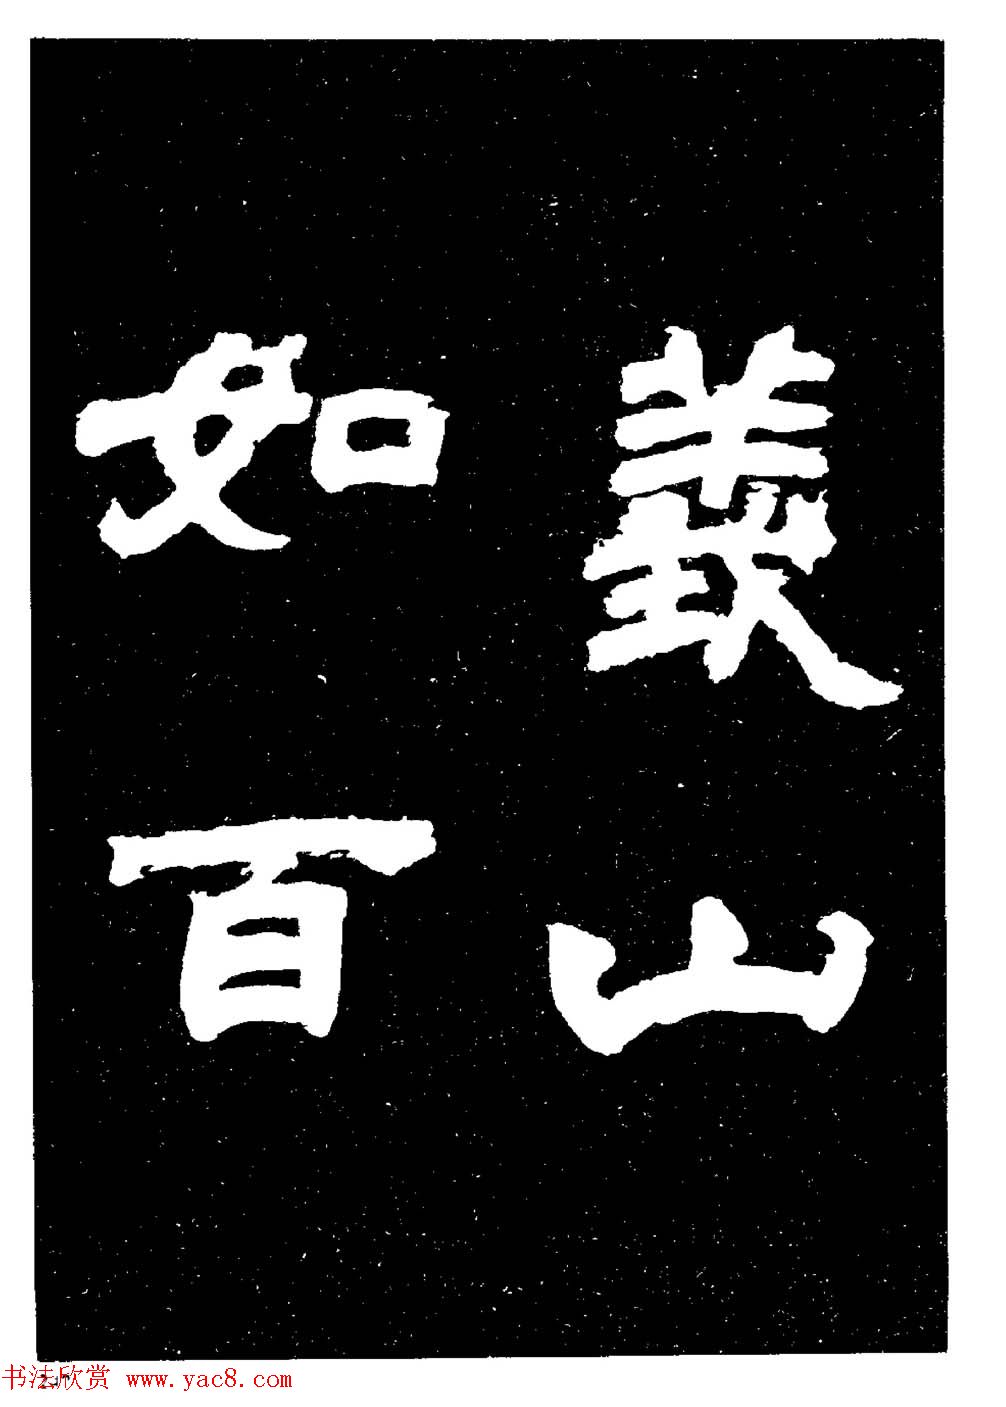 義山
如百
书法欣赏 www.yac8.com